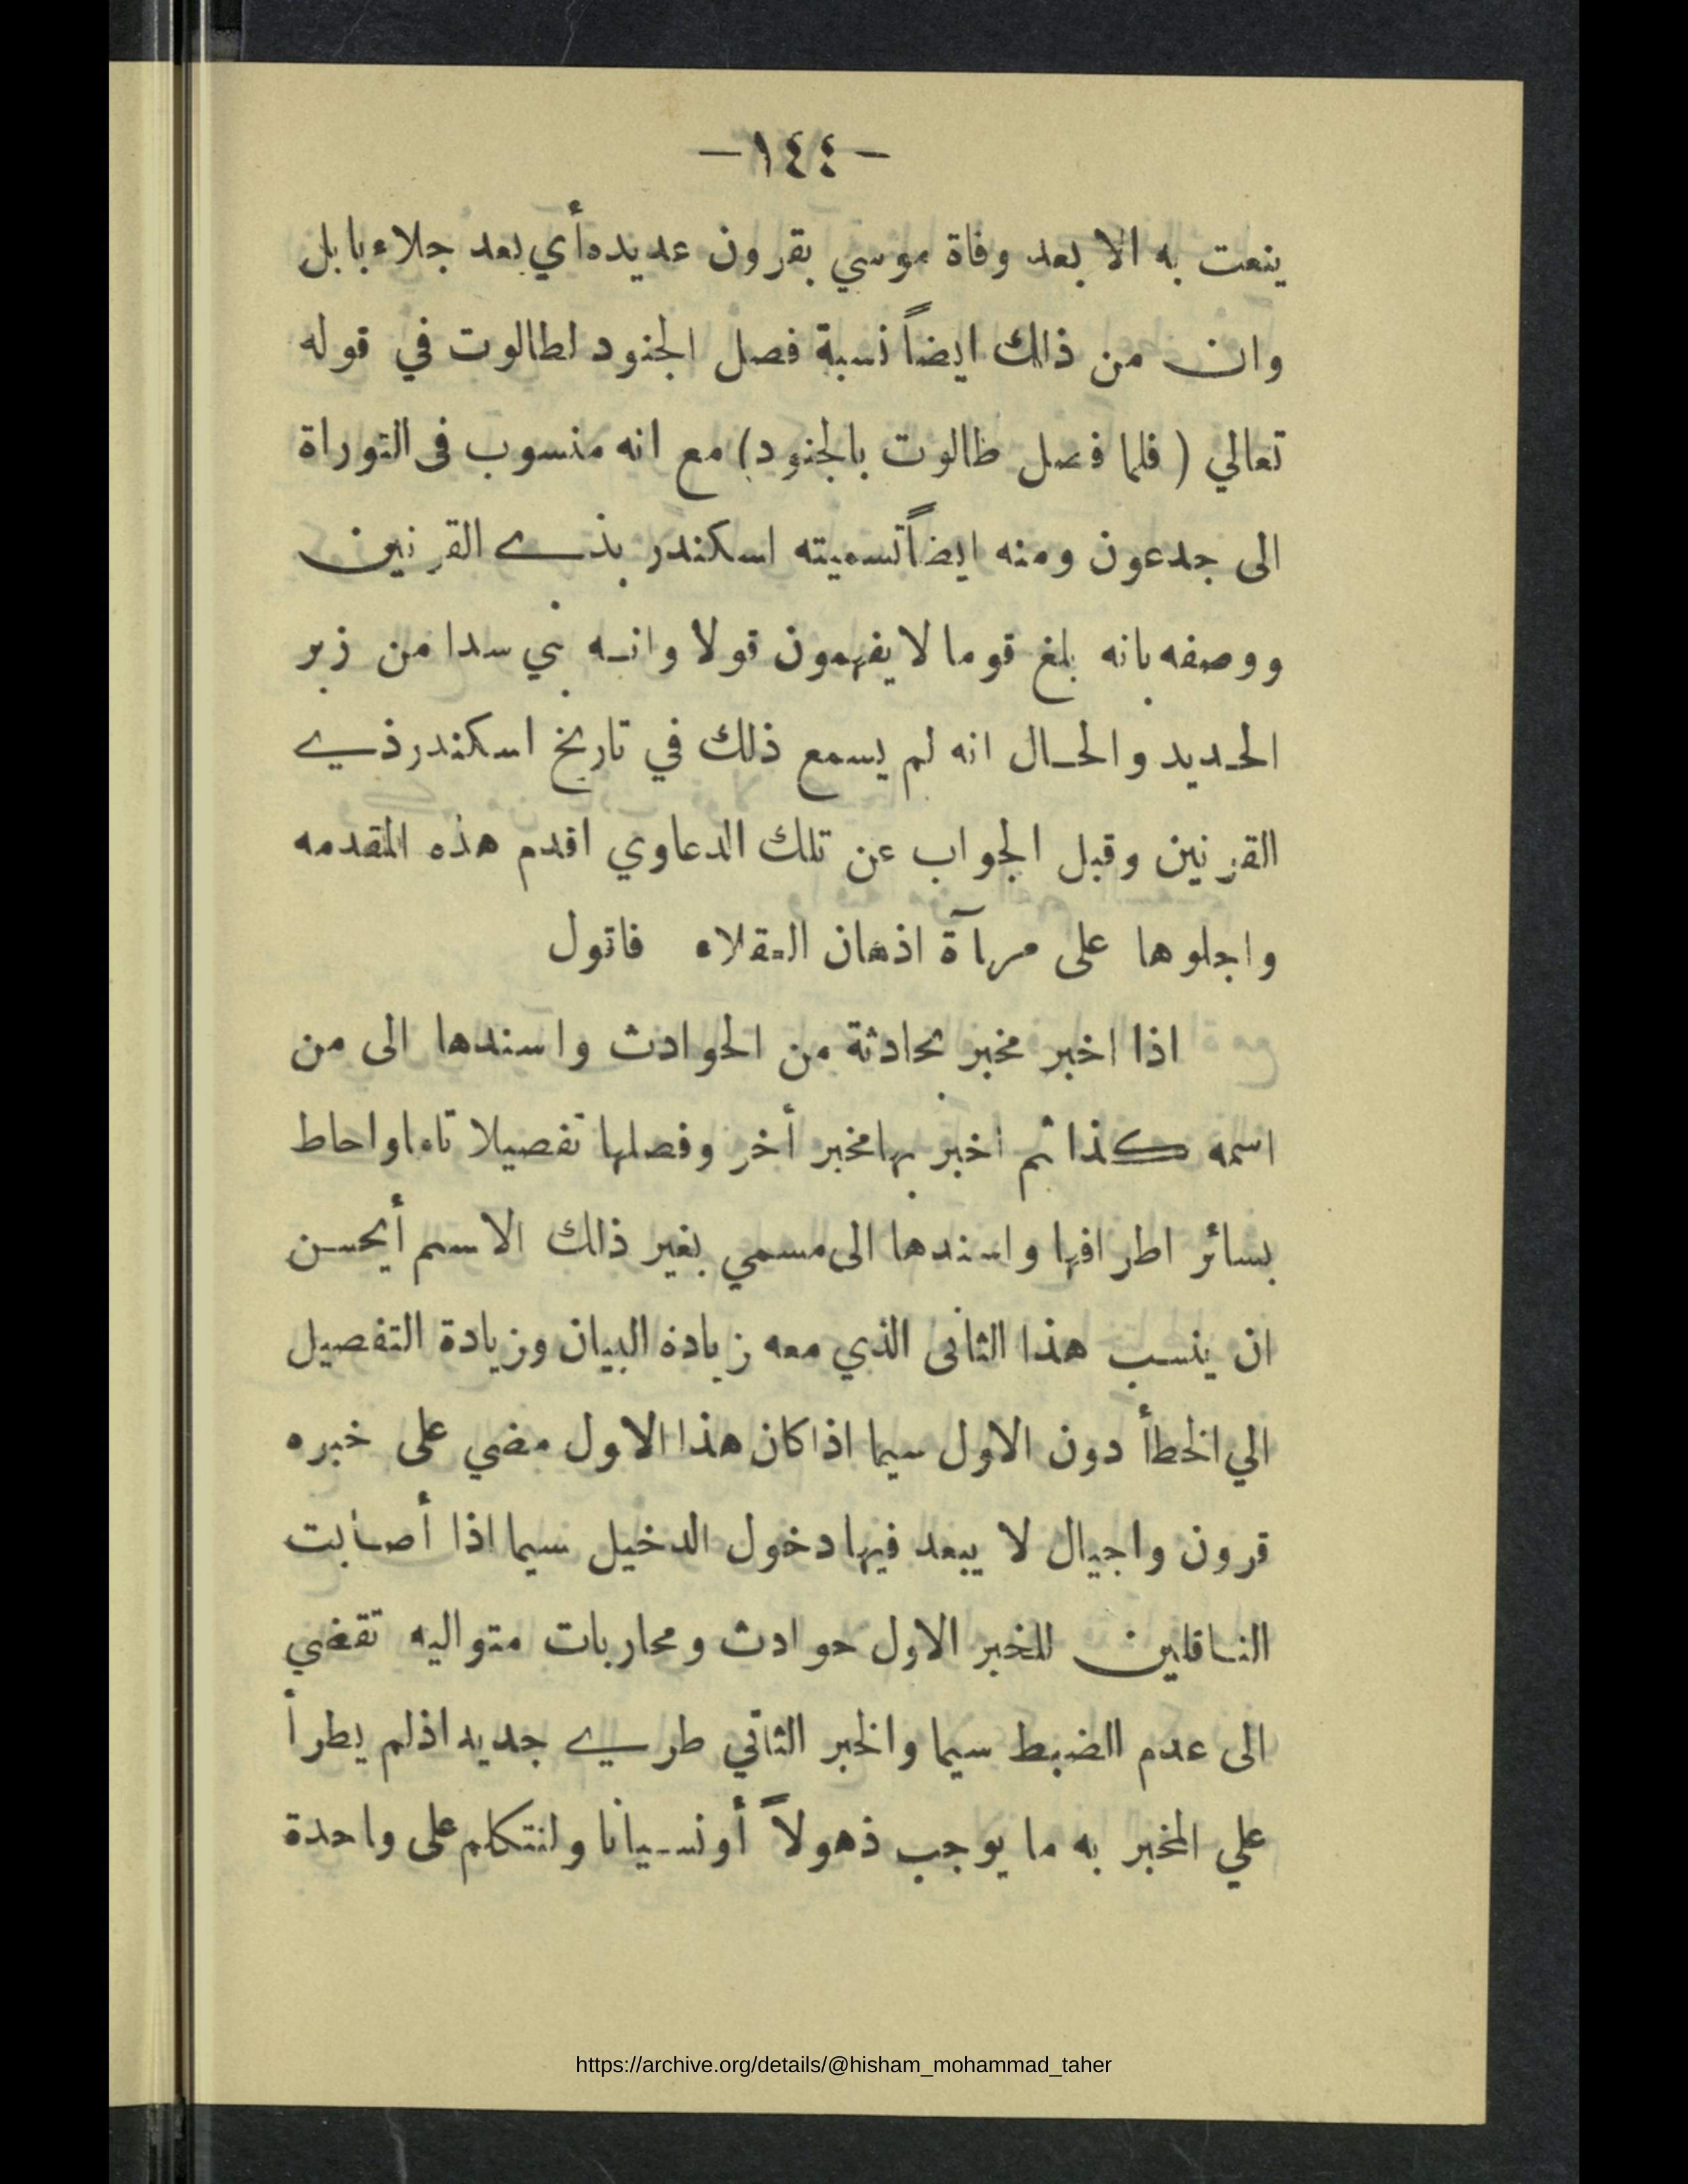 -١٤٤-
ينعت به الا بعد وفاة موسي بقرون عديده أي بعد جلاء بابل
وان من ذلك ايضاً نسبة فصل الجنود لطالوت في قوله
تعالي (فلما فصل طالوت بالجنود) مع انه منسوب فى التوراة
الى جدعون ومنه ايضاً تسميته اسكندر بذي القرنين
ووصفه بانه بلغ قوما لا يفهمون قولا وانه بني سدا من زبر
الحديد والحال انه لم يسمع ذلك في تاريخ اسكندر ذي
القرنين وقبل الجواب عن تلك الدعاوي اقدم هذه المقدمه
واجلوها على مرآة اذهان العقلاء فاقول
اذا اخبر مخبر بحادثة من الحوادث واسندها الى من
اسمه كذا ثم اخبر بها مخبر أخر وفصلها تفصيلا تاما واحاط
بسائر اطرافها واسندها الى مسمي بغير ذلك الاسم أيحسن
ان ينسب هذا الثانى الذي معه زيادة البيان وزيادة التفصيل
الي الخطأ دون الاول سيما اذا كان هذا الاول مضي على خبره
قرون واجيال لا يبعد فيها دخول الدخيل سيما اذا أصابت
الناقلين للخبر الاول حوادث ومحاربات متواليه تقضي
الى عدم الضبط سيما والخبر الثاني طري جديد اذ لم يطرأ
علي المخبر به ما يوجب ذهولاً أو نسيانا ولنتكلم على واحدة
https://archive.org/details/@hisham_mohammad_taher